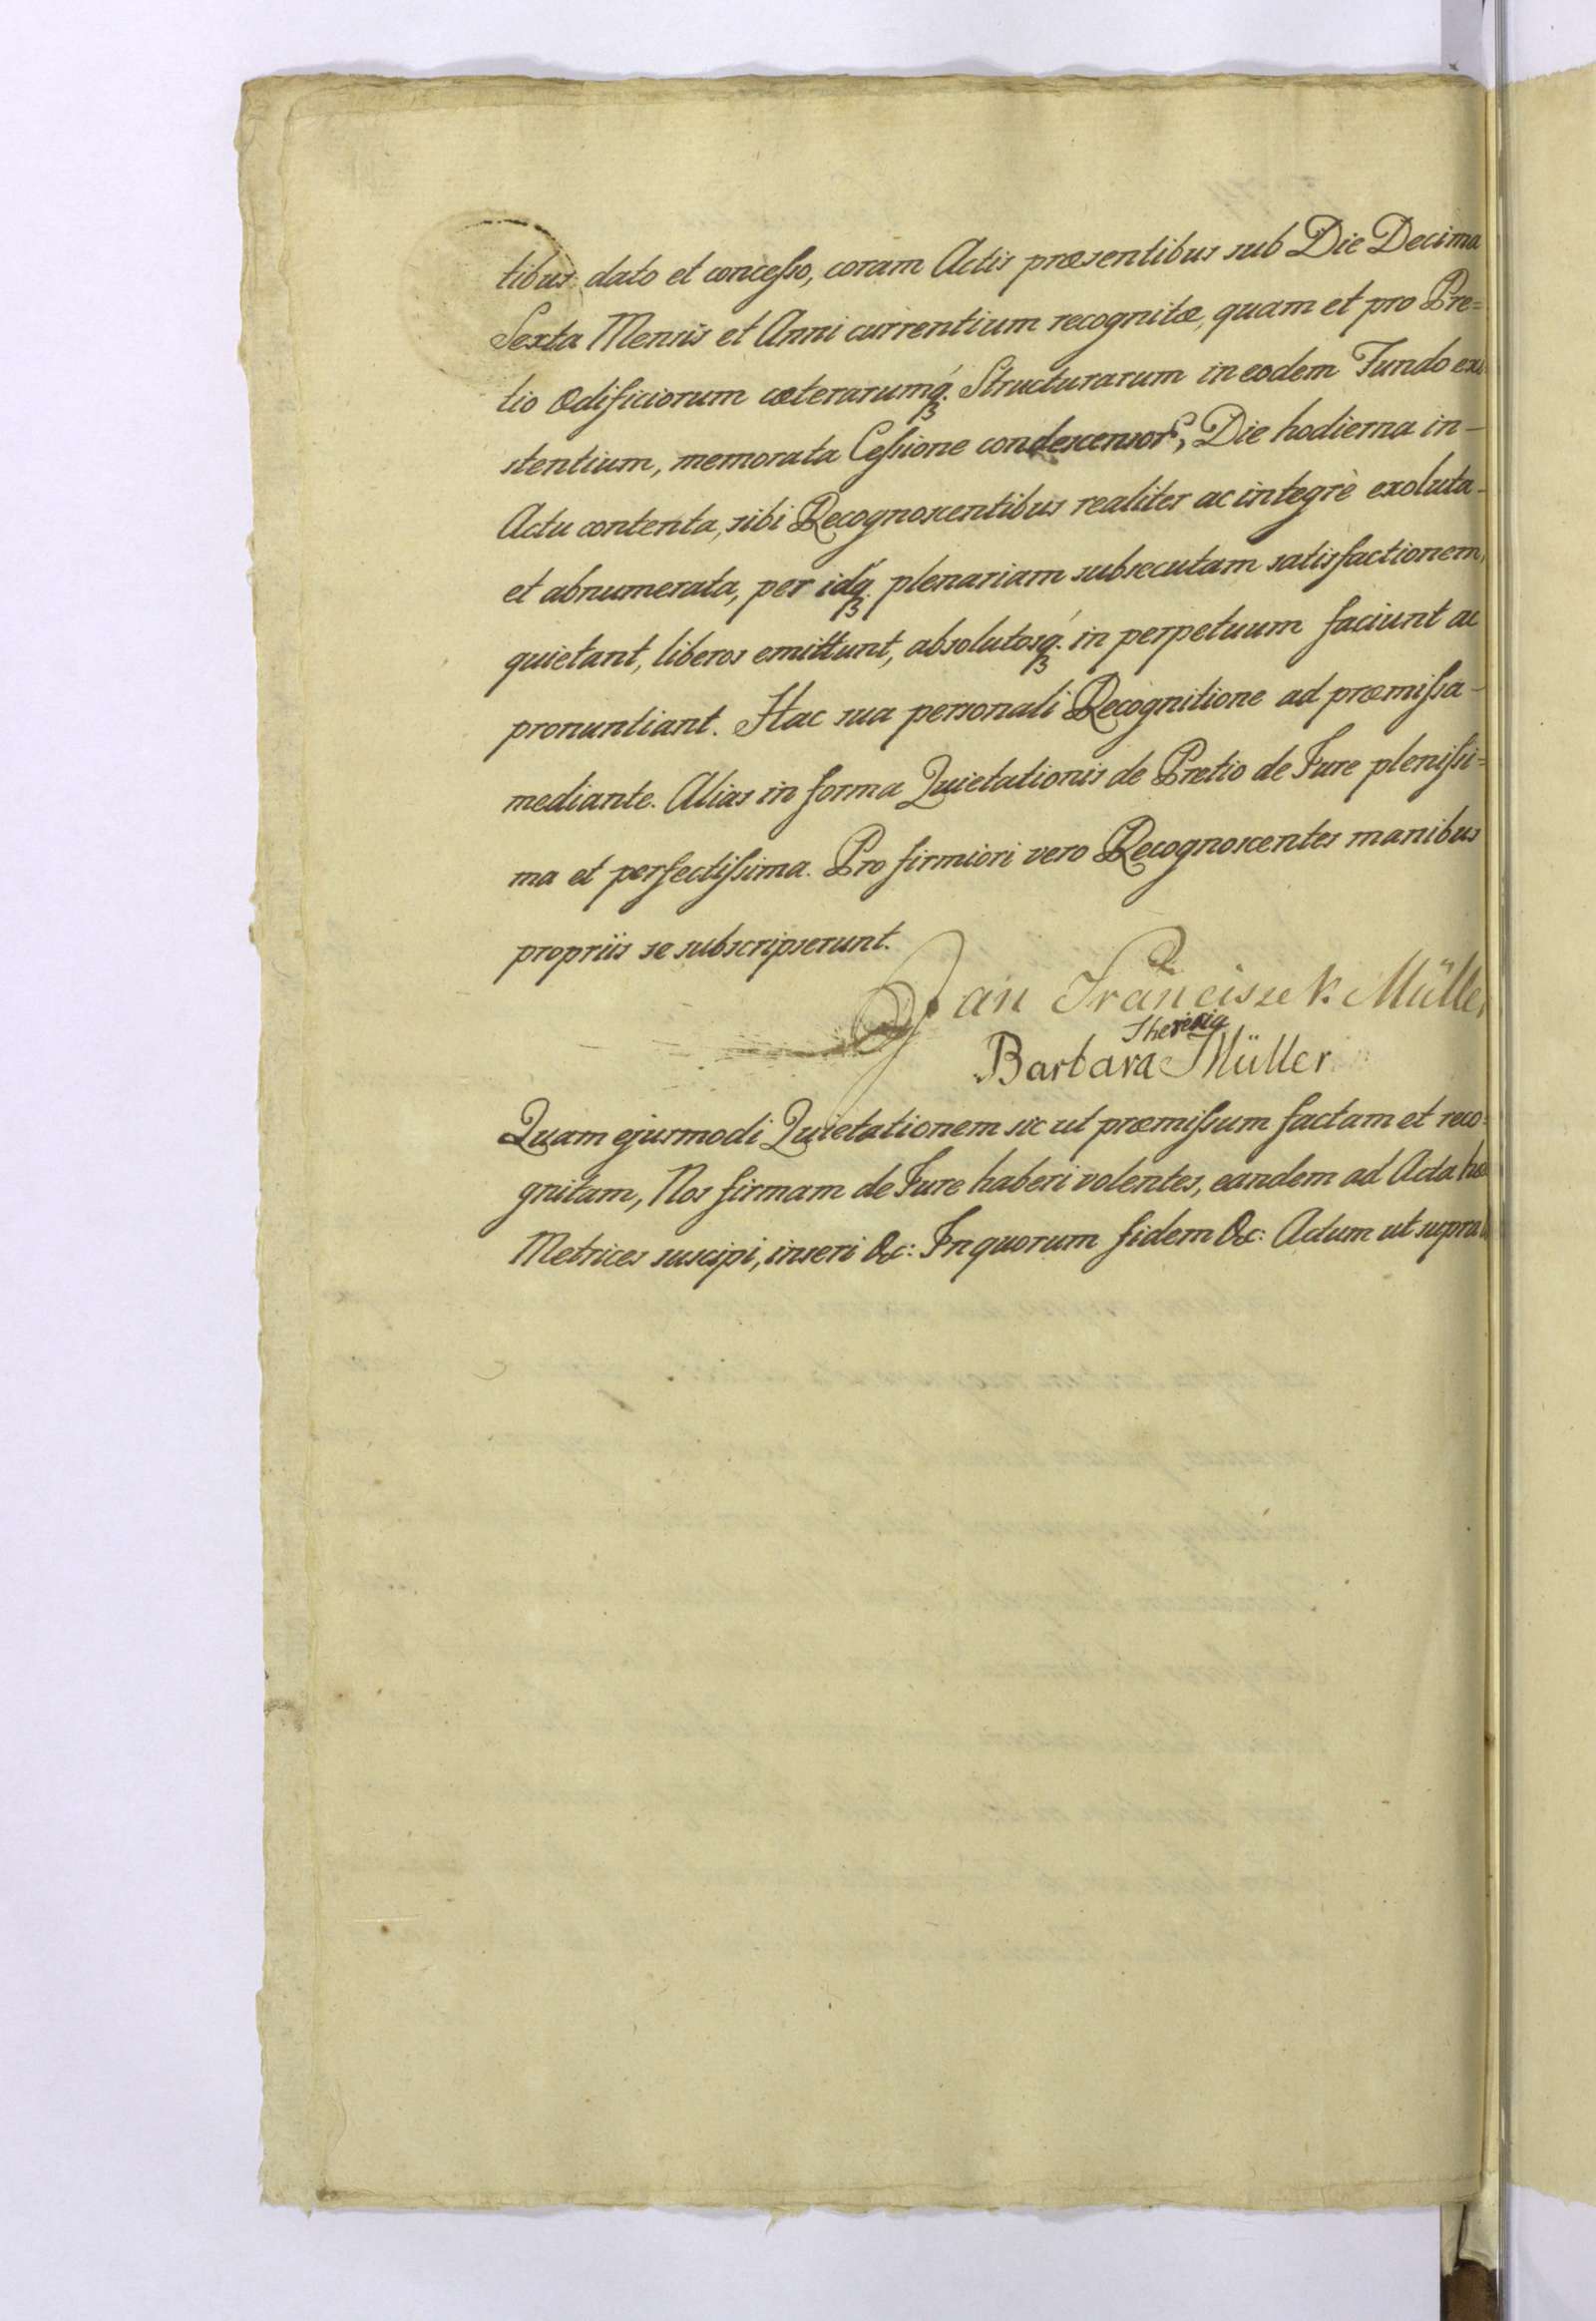 tibus dato et concesso, coram Actis præsentibus sub Die Decima
Sexta Mensis et Anni currentium recognitæ, quam et pro Pre=
tio Ædificiorum cæterarumq́ꝫ Structurarum in eodem Fundo exi
stentium, memorata Cessione condescensor, Die hodierna in-
Actu contenta, sibi Recognoscentibus realiter ac integrè exoluta-
et abnumerata, per idq́ꝫ plenariam subsecutam satisfactionem,
quietant, liberos emittunt, absolutosq́ꝫ in perpetuum faciunt ac
pronuntiant. Hac sua personali Recognitione ad præmissa-
mediante. Alias in forma Quietationis de Pretio de Jure plenissi=
ma et perfectissima. Pro firmiori vero Recognoscentes manibus
propriis se subscripserunt.
Jan Franciszek Müller
Theresia
Barbara Müller
Quam ejusmodi Quietationem sic ut præmissum factam et reco=
gnitam, Nos firmam de Jure haberi volentes, eandem ad Acta hæc
Metrices suscipi, inseri &c: In quorum fidem &c: Actum ut supra